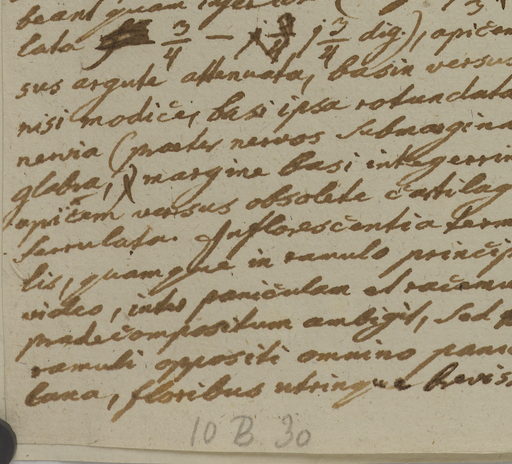 beant quam inferior
lata 3/4 — 1 3/4 dig.), apicem
sus argute attenuata, basin versus
nisi modice, basi ipsa rotundata
nervia (praeter nervos submargina
glabra, margine basi integerrim
apicem versus obsolete cartilag
serrulata. Inflorescentia term
lis, quamque in ramulo princip
video, inter paniculam et racemu
pradecompositum ambigit, sed
ramuli oppositi omnino pani
lana, floribus utrinque breviss
10 B 30